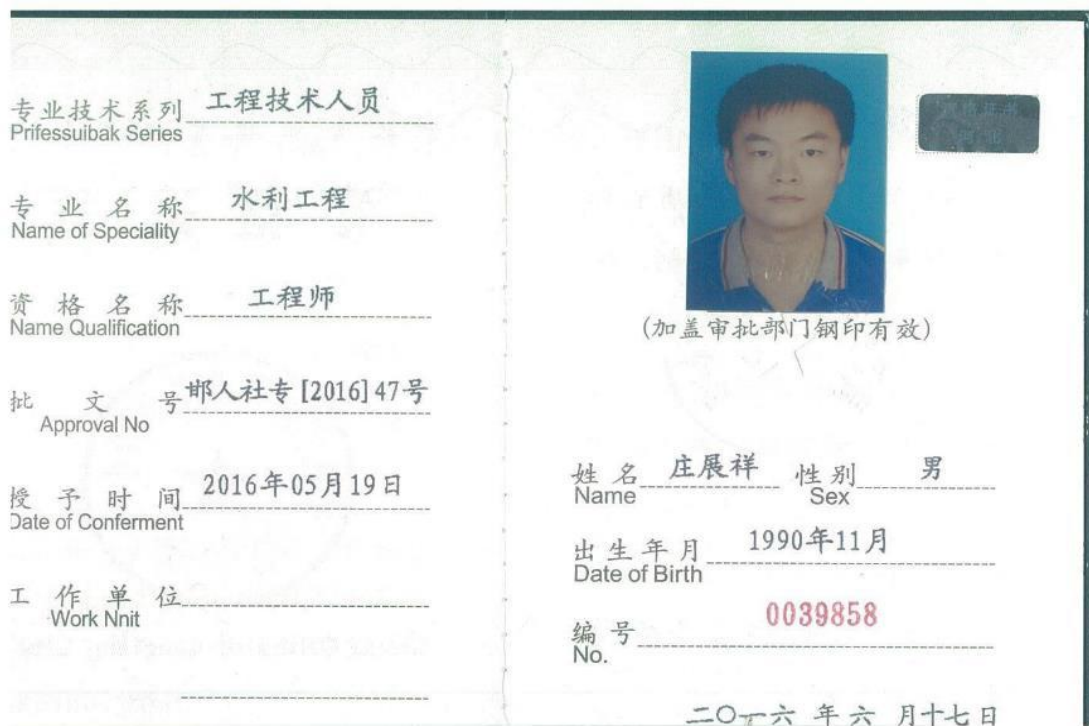 专业技术系列 工程技术人员
Prifessuibak Series
专业名称 水利工程
Name of Speciality
资格名称 工程师
Name Qualification
批文号 邯人社专[2016]47号
Approval No
授予时间 2016年05月19日
Date of Conferment
工作单位
Work Nnit
(加盖审批部门钢印有效)
姓名 庄展祥 性别 男
Name Sex
出生年月 1990年11月
Date of Birth
编号 0039858
No.
二〇一六年六月十七日